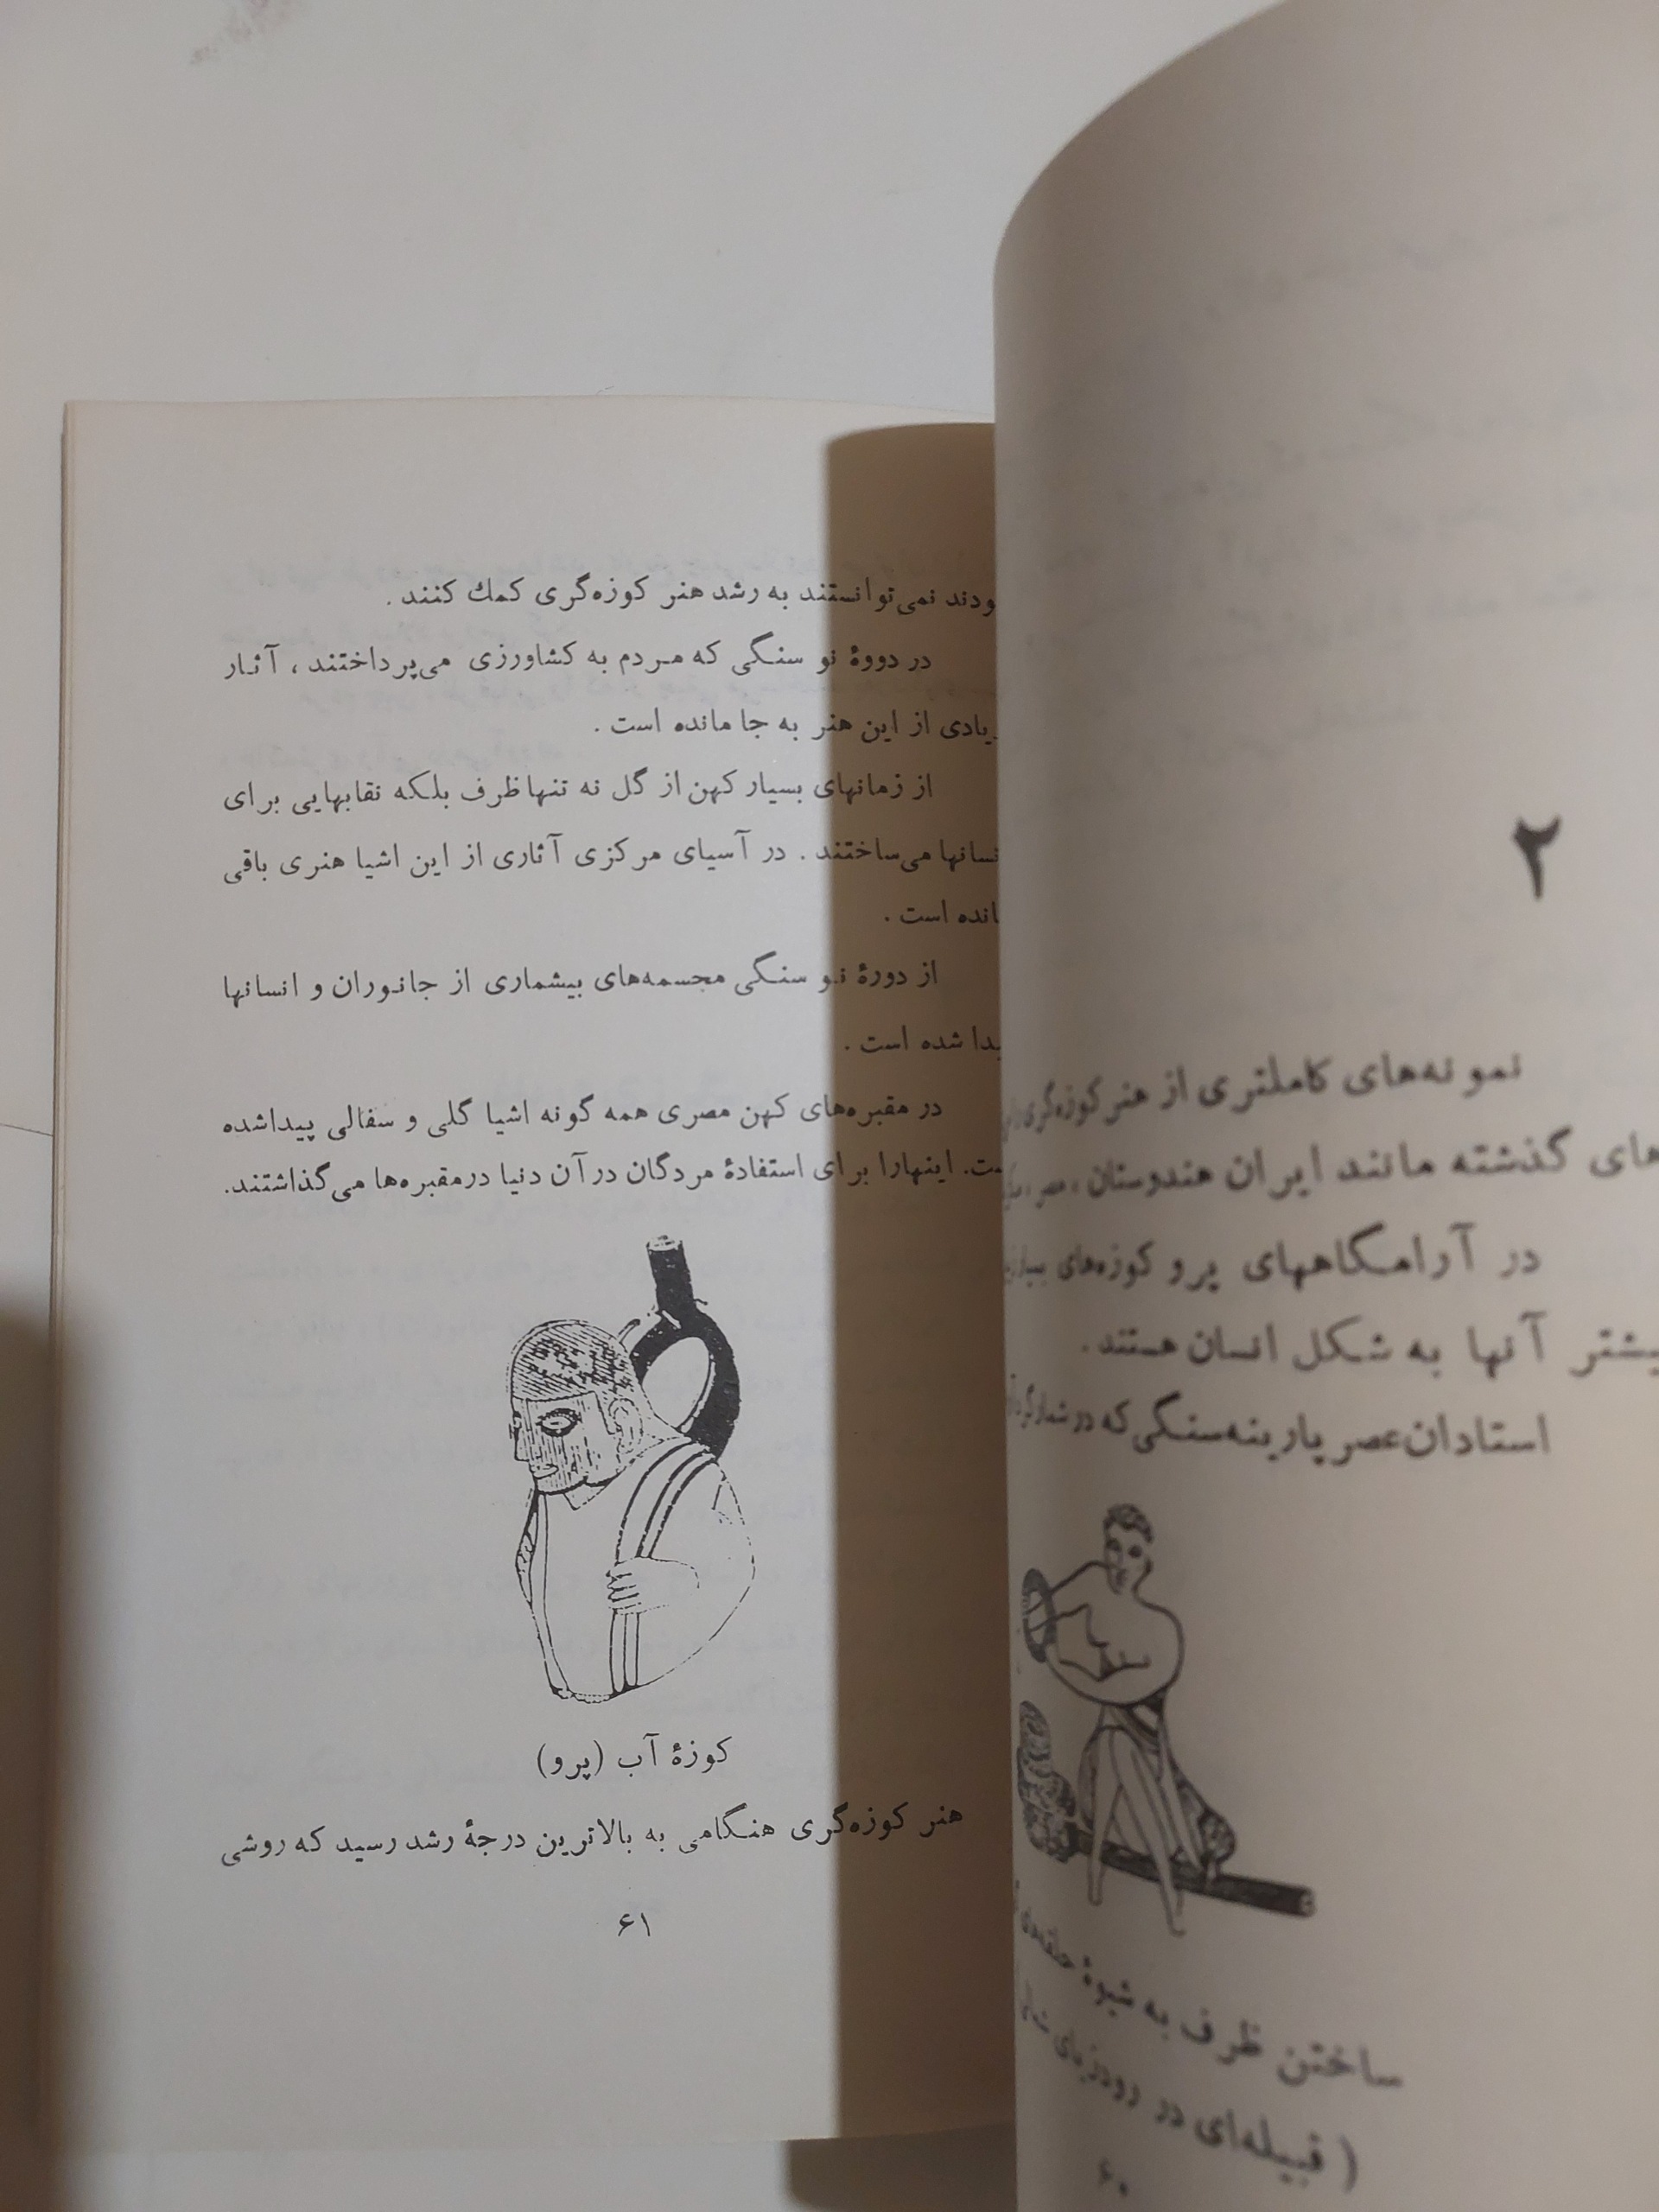 ۲
نمونه‌های کاملتری از هنر کوزه‌گری
های گذشته مانند ایران هندوستان ، مصر ،
در آرامگاههای پرو کوزه‌های
بیشتر آنها به شکل انسان هستند.
استادان عصر پارینه‌سنگی که در شمار
ساختن ظرف به شیوهٔ حلقه‌های
( قبیله‌ای در رودزیای
۶۰
ودند نمی‌توانستند به رشد هنر کوزه‌گری کمك کنند .
در دووهٔ نو سنگی که مردم به کشاورزی می‌پرداختند ، آثار
زیادی از این هنر به جا مانده است .
از زمانهای بسیار کهن از گل نه تنها ظرف بلکه نقابهایی برای
نسانها می‌ساختند . در آسیای مرکزی آثاری از این اشیا هنری باقی
مانده است .
از دورهٔ نو سنگی مجسمه‌های بیشماری از جانوران و انسانها
یدا شده است .
در مقبره‌های کهن مصری همه گونه اشیا گلی و سفالی پیدا شده
ست. اینهارا برای استفادهٔ مردگان در آن دنیا در مقبره‌ها می‌گذاشتند.
کوزهٔ آب (پرو)
هنر کوزه‌گری هنگامی به بالاترین درجهٔ رشد رسید که روشی
۶۱